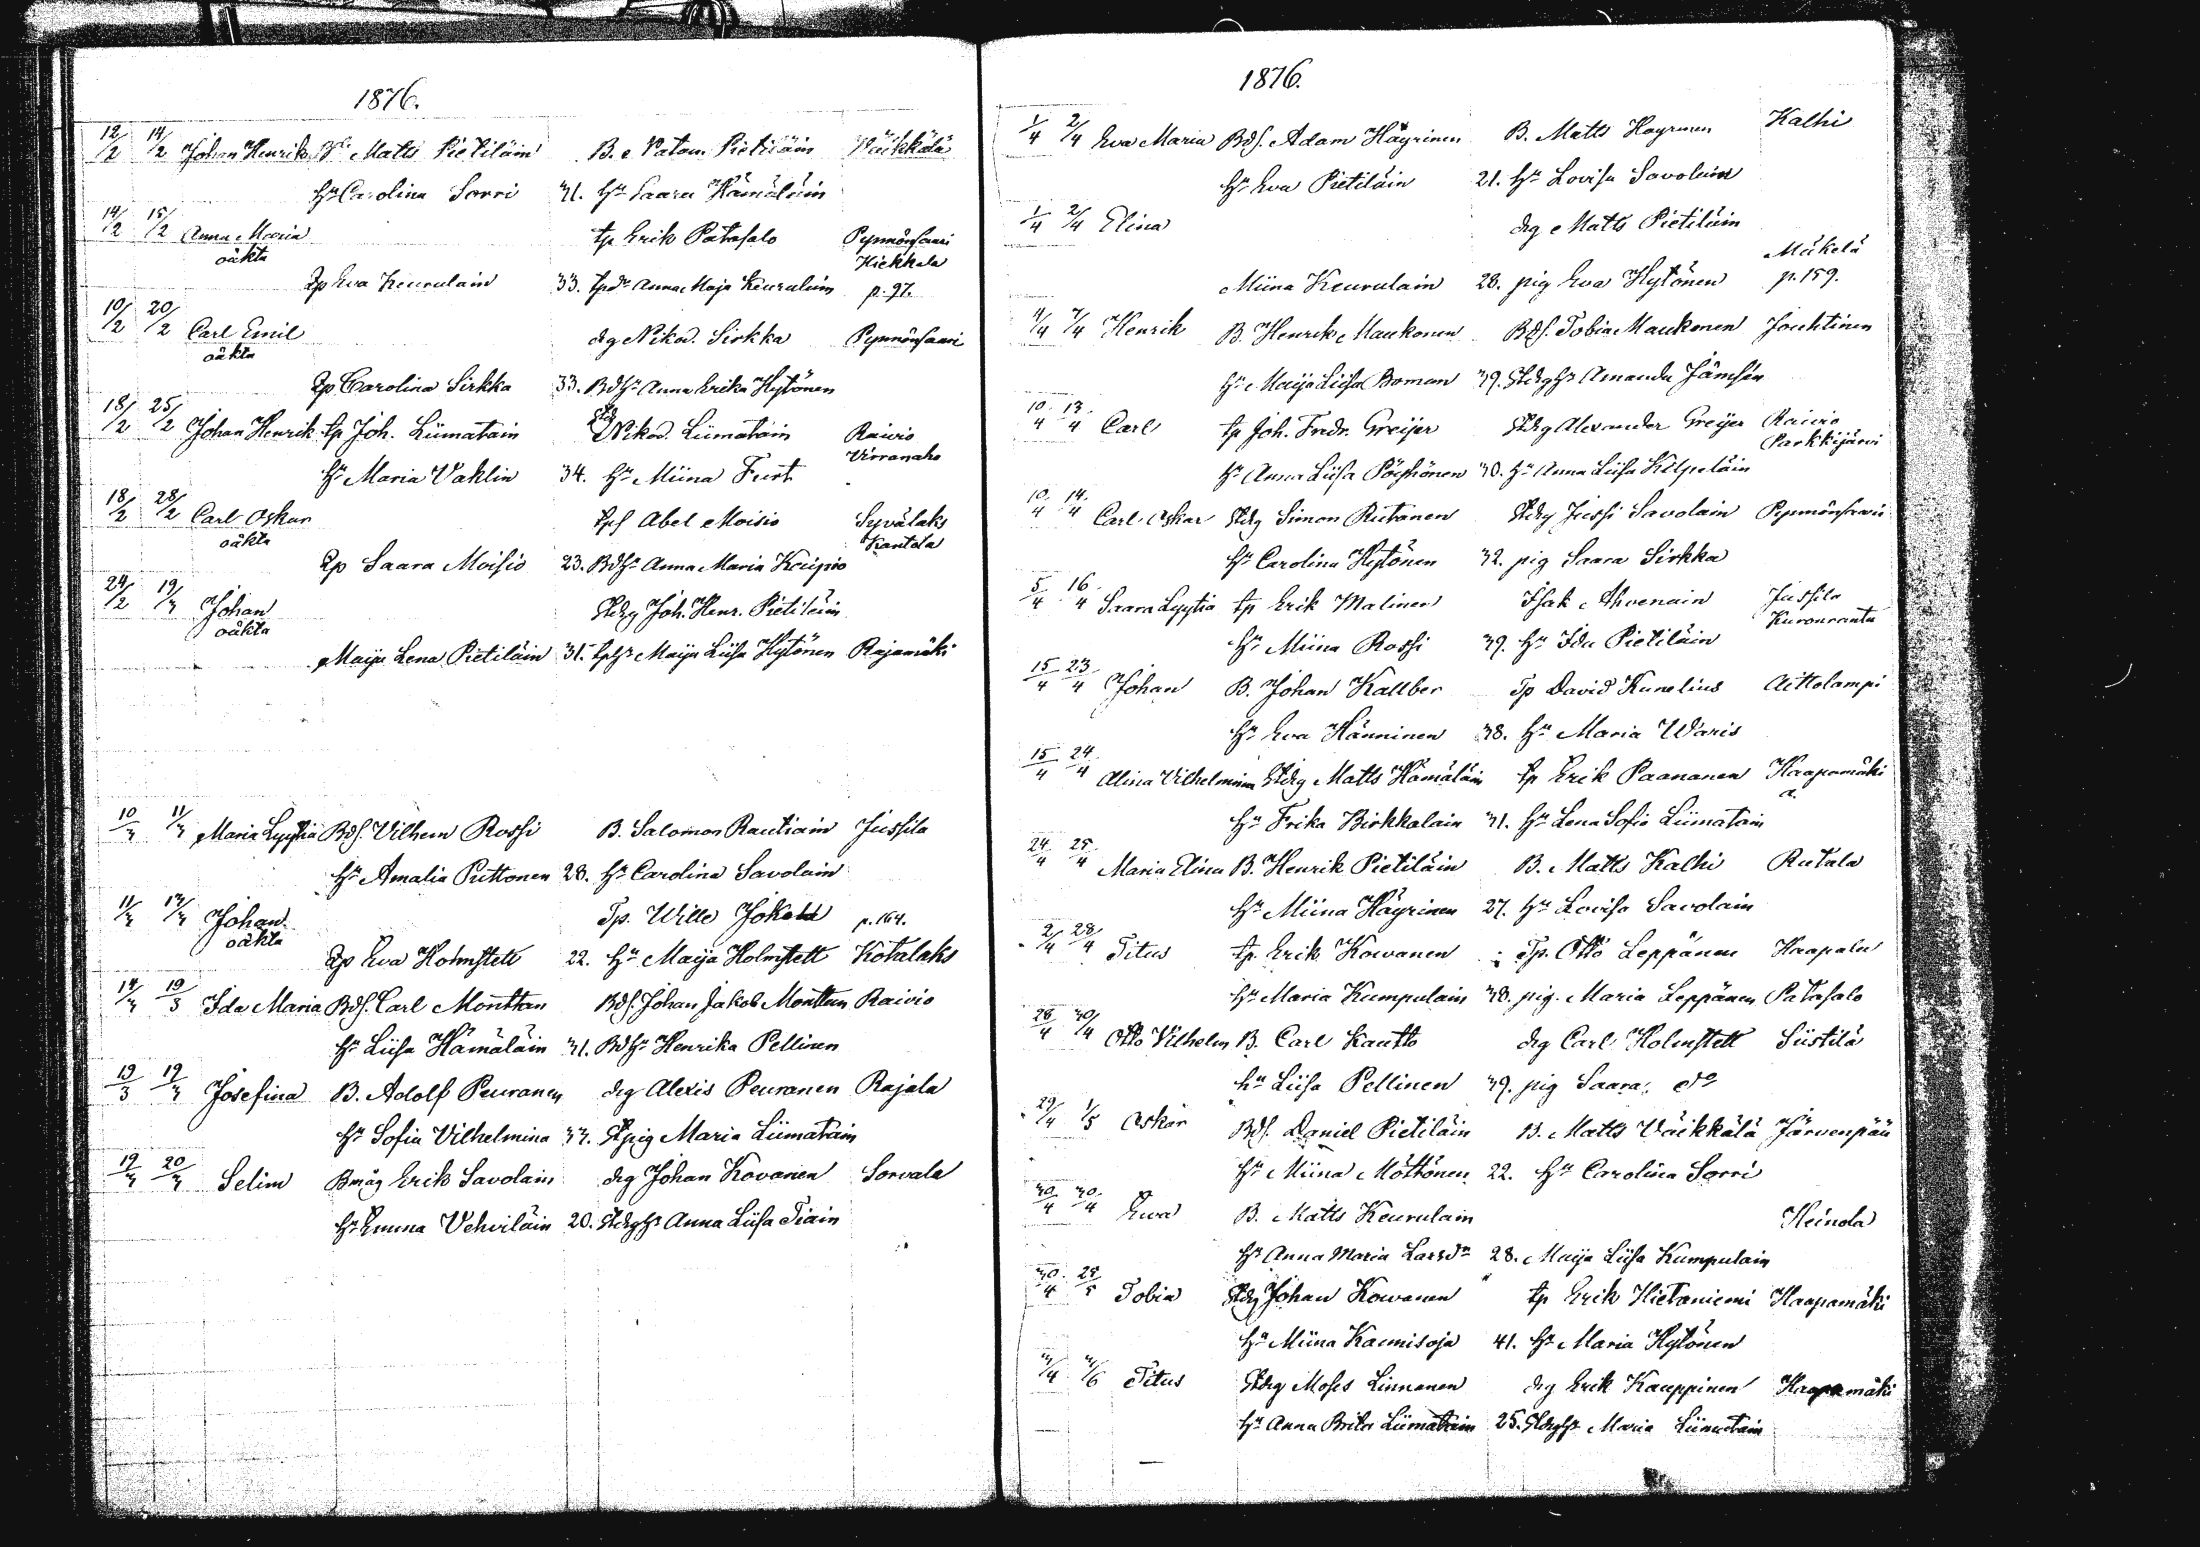 1876.
12/2 14/2 Johan Henrik Matts Pietiläin B. Natan Pietiläin Väikkälä
Hu Carolina Sorri 31. Hu Saara Hämäläin
14/2 15/2 Anna Maria tp Erik Patasalo Pynnönsaari
oäkta Hiekkala
Qp Eva Keurulain 33. tpdr Anna Maja Keurulain p. 97.
10/2 20/2 Carl Emil drg Nikod. Sirkka Pynnönsaari
oäkta
Qp Carolina Sirkka 33. Bdhu Anna Erika Hytönen
18/2 25/2 Johan Henrik tp Joh. Liimatain Stdg Nikod. Liimatain Raivio
Virranaho
Hu Maria Vaklin 34. Hu Miina Turt
18/2 28/2 Carl Oskar tps Abel Moisio Syvälaks
oäkta Kantola
Qp Saara Moisio 23. Bdhu Anna Maria Kuipio
24/2 19/3 Johan Stdrg Joh. Henr. Pietiläin
oäkta
Maija Lena Pietiläin 31. tphu Maija Liisa Hytönen Rajamäki
10/3 11/3 Maria Lyytia Bds. Vilhem Rossi B. Salomon Rautiain Jussila
Hu Amalia Puttonen 28. Hu Carolina Savolain
11/3 13/3 Johan Tp. Wille Jokela p. 164.
oäkta
Qp Eva Holmstett 22. Hu Maija Holmstett Kotalaks
14/3 19/3 Ida Maria Bds. Carl Monttan Bds. Johan Jakob Monttan Raivio
Hu Liisa Hämäläin 31. Bdhu Henrika Pellinen
19/3 19/3 Josefina B. Adolf Peuranen drg Alexis Peuranen Rajala
Hu Sofia Vilhelmina 33. Stpig Maria Liimatain
19/3 20/3 Selim Bmåg Erik Savolain drg Johan Kovanen Sorvala
Hu Emma Vehviläin 20. Stdrghu Anna Liisa Tiain
1876.
1/4 2/4 Eva Maria Bds. Adam Häyrinen B. Matts Hayrinen Kalhi
Hu Eva Pietiläin 21. Hu Lovisa Savolain
1/4 2/4 Elina drg Matts Pietiläin
Mäkelä
Miina Keurulain 28. pig Eva Hytönen p. 159.
4/4 7/4 Henrik B. Henrik Maukonen Bds. Tobia Maukonen Jouhtinen
Hu Maija Liisa Boman 39. Stdrghu Amanda Jämsén
10/4 13/4 Carl tp Joh. Fredr. Greijer Stdrg Alexander Greijer Raivio
Parkkijärvi
Hu Anna Liisa Pöyhönen 30. Hu Anna Liisa Kilpeläin
10/4 14/4 Carl Oskar Stdrg Simon Rutanen Stdrg Jussi Savolain Pynnönsaari
Hu Carolina Hytönen 32. pig Saara Sirkka
5/4 16/4 Saara Lyytia tp Erik Malinen Isak Ahvenain Jussila
Kuronranta
Hu Miina Rossi 39. Hu Ida Pietiläin
15/4 23/4 Johan B. Johan Kallber Tp David Kunelius Aittolampi
Hu Eva Hänninen 38. Hu Maria Waris
15/4 24/4 Alina Vilhelmina Stdrg Matts Hämäläin tp Erik Paananen Haapamäki
a.
Hu Frika Birkkalain 31. Hu Lena Sofia Liimatain
24/4 25/4 Maria Elina B. Henrik Pietiläin B. Matts Kalhi Rutala
Hu Miina Häyrinen 27. Hu Lovisa Savolain
2/4 28/4 Titus tp. Erik Kowanen Tp. Otto Leppänen Haapala
Hu Maria Kumpulain 38. pig. Maria Leppänen Patasalo
28/4 30/4 Otto Vilhelm B. Carl Kautto drg Carl Holmstett Siistilä
Hu Liisa Pellinen 39. pig Saara do
29/4 1/5 Oskar Bds. Daniel Pietiläin B. Matts Väikkälä Järvenpää
Hu Miina Möttönen 22. Hu Carolina Sorri
30/4 30/4 Ewa B. Matts Keurulain Heinola
Hu Anna Maria Larsdr 28. Maija Liisa Kumpulain
30/4 25/5 Tobia Stdrg Johan Kowanen tp Erik Hietaniemi Haapamäki
Hu Miina Kaunisoja 41. Hu Maria Hytönen
3/4 4/6 Titus Stdrg Moses Linnanen drg Erik Kauppinen Haapamäki
Hu Anna Brita Liimatain 25. Stdrghu Maria Liimatain